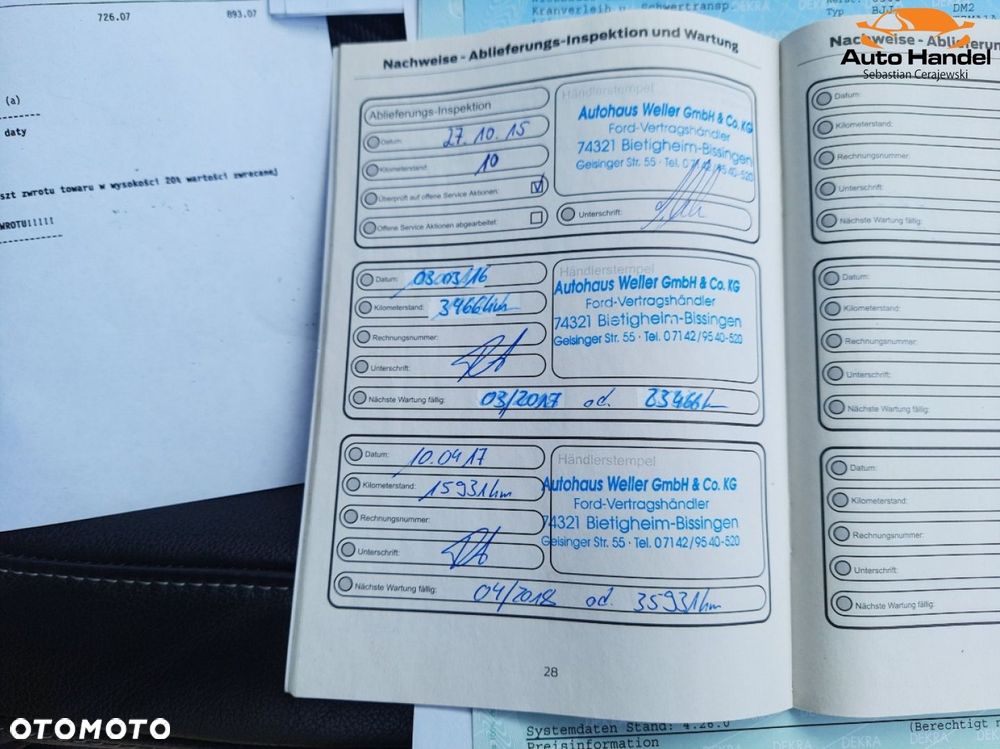 726.07 893.07
(a)
daty
szt zwrotu towaru w wysokości 20% wartości zwracanej
WROTU!!!!!
Kranverleih u. Schwertransp.
DEKRA
BJJ
DM2
Auto Handel
Sebastian Cerajewski
Nachweise - Ablieferungs-Inspektion und Wartung
Ablieferungs-Inspektion
Datum: 27.10.15
Kilometerstand: 10
Überprüft auf offene Service Aktionen:
Offene Service Aktionen abgearbeitet:
Händlerstempel
Autohaus Weller GmbH & Co. KG
Ford-Vertragshändler
74321 Bietigheim-Bissingen
Geisinger Str. 55 · Tel. 0 71 42 / 95 40-520
Unterschrift:
Datum: 03.03.16
Kilometerstand: 3466 km
Rechnungsnummer:
Unterschrift:
Nächste Wartung fällig: 03/2017 od. 23466 km
Händlerstempel
Autohaus Weller GmbH & Co. KG
Ford-Vertragshändler
74321 Bietigheim-Bissingen
Geisinger Str. 55 · Tel. 0 71 42 / 95 40-520
Datum: 10.04.17
Kilometerstand: 15931 km
Rechnungsnummer:
Unterschrift:
Nächste Wartung fällig: 04/2018 od. 35931 km
Händlerstempel
Autohaus Weller GmbH & Co. KG
Ford-Vertragshändler
74321 Bietigheim-Bissingen
Geisinger Str. 55 · Tel. 0 71 42 / 95 40-520
28
Nachweise - Ablieferun
Datum:
Kilometerstand:
Rechnungsnummer:
Unterschrift:
Nächste Wartung fällig:
Datum:
Kilometerstand:
Rechnungsnummer:
Unterschrift:
Nächste Wartung fällig:
Datum:
Kilometerstand:
Rechnungsnummer:
Unterschrift:
Nächste Wartung fällig:
Systemdaten Stand: 4.26.0 (Berechtigt
Preisinformation
DEKRA
OTOMOTO